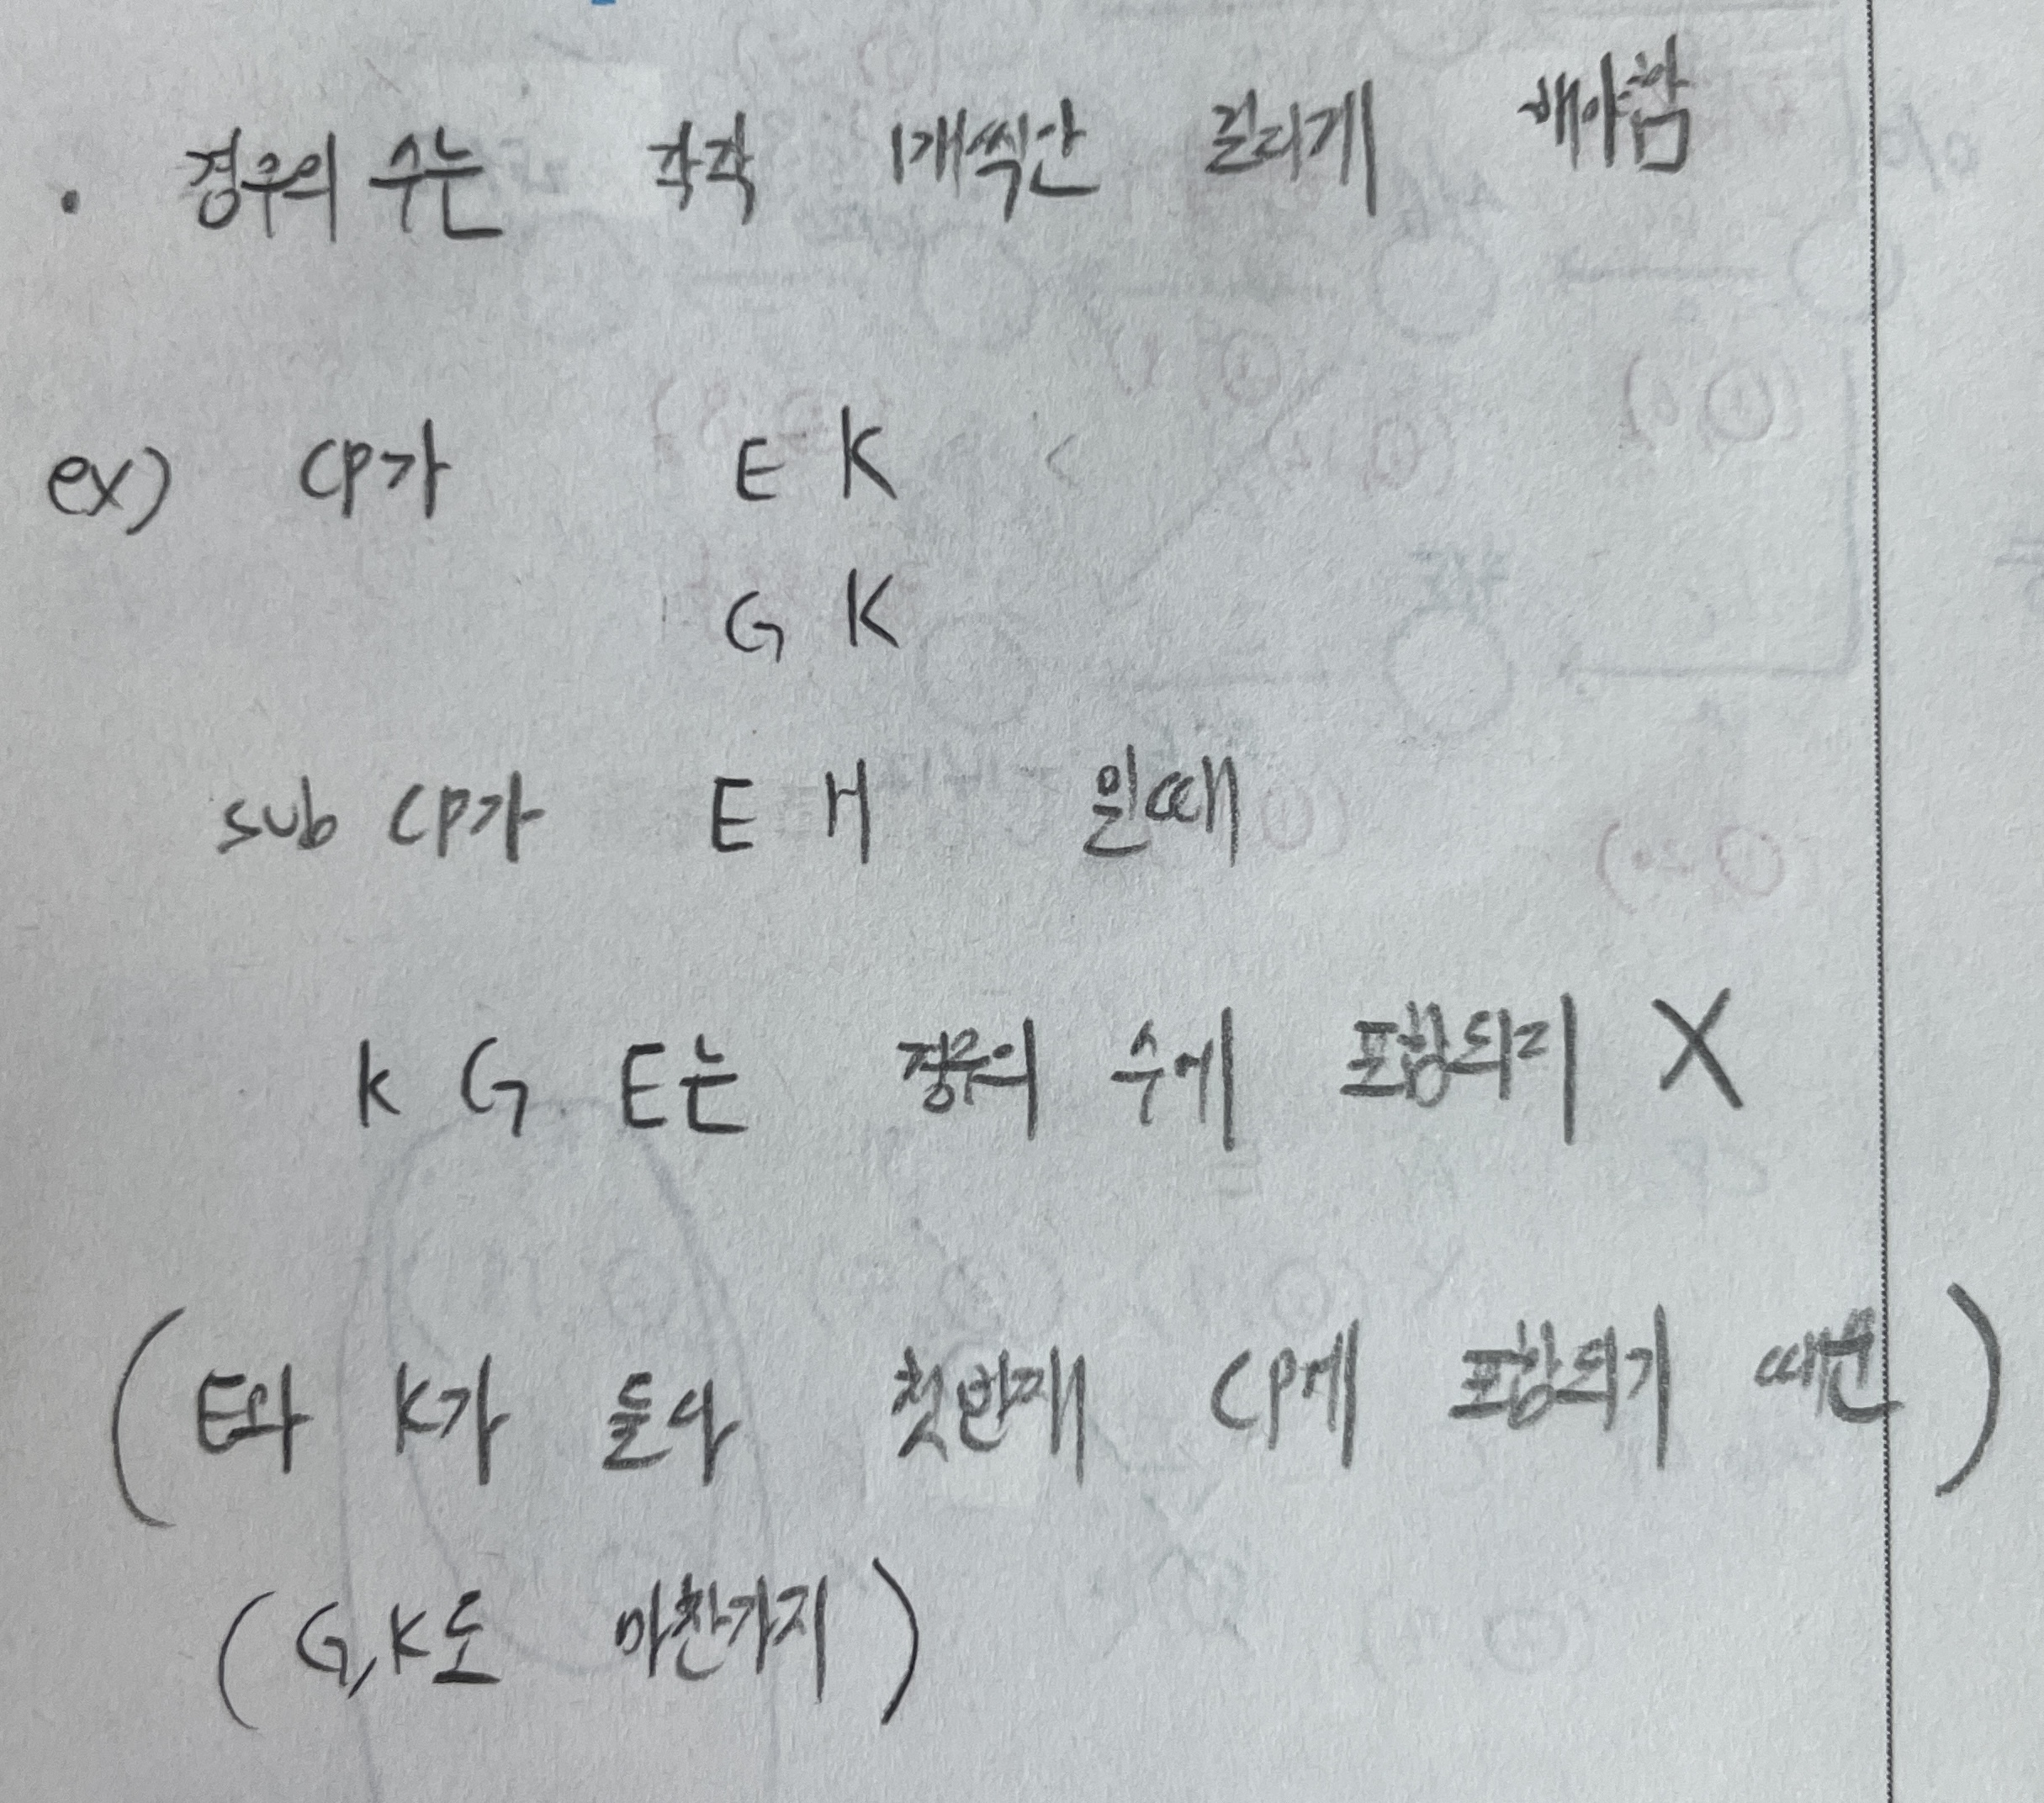 · 경우의 수는 각각 1개씩만 걸리게 해야함
ex) CP가 E K
G K
sub CP가 E H 일때
K G E는 경우의 수에 포함되지 X
(E와 K가 둘다 첫번째 CP에 포함되기 때문)
(G,K도 마찬가지)